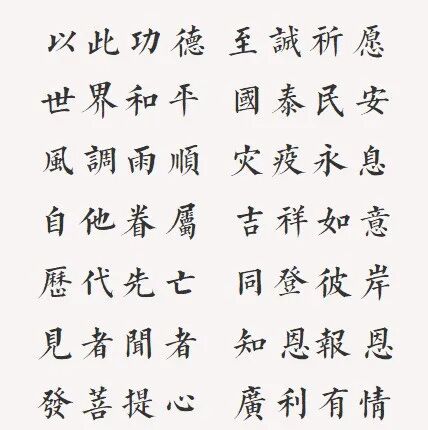 以此功德 至誠祈愿
世界和平 國泰民安
風調雨順 灾疫永息
自他眷屬 吉祥如意
歷代先亡 同登彼岸
見者聞者 知恩報恩
發菩提心 廣利有情